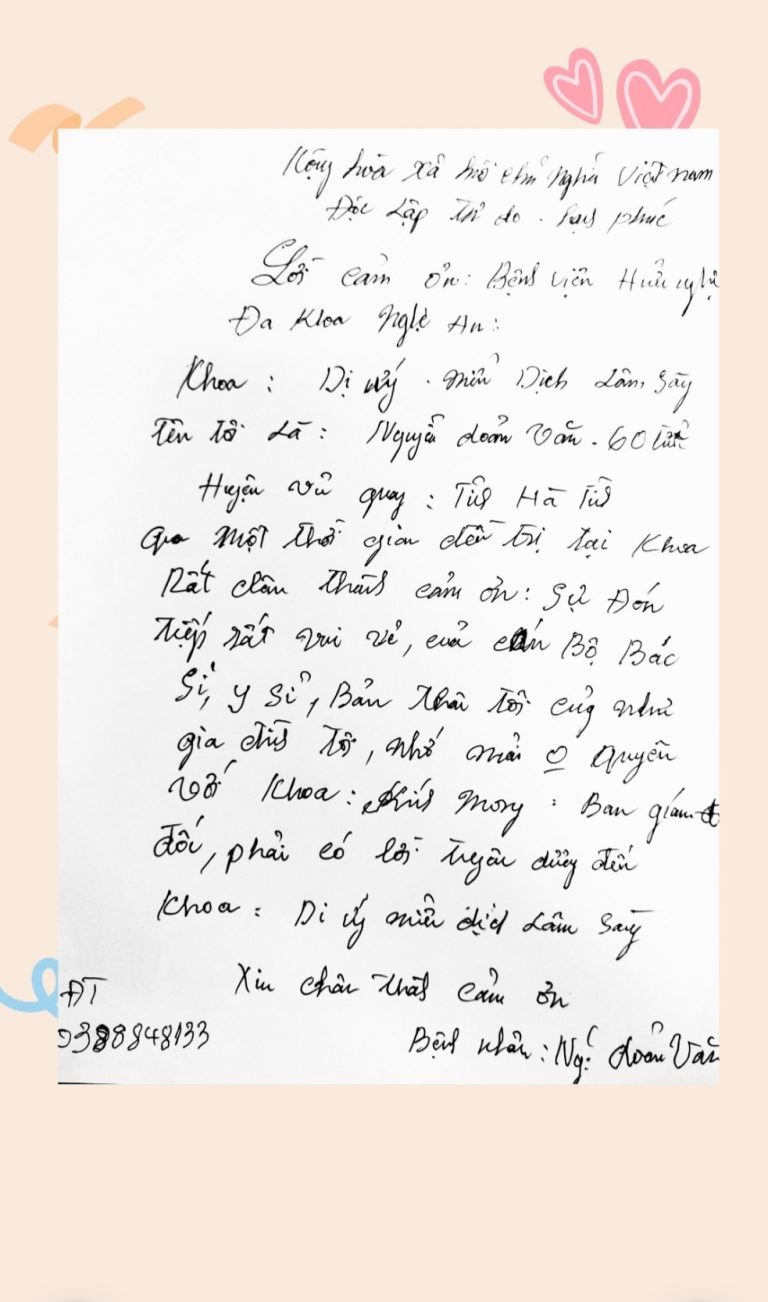 Cộng hòa xã hôi chủ nghĩa Việt nam
Độc Lập Tự do . hạnh phúc
Lời cảm ơn: Bệnh viện Hữu nghị
Đa Khoa Nghệ An:
Khoa : Dị ứng . miễn Dịch Lâm, sàng
Tên tôi Là : Nguyễn doãn Văn . 60 tuổi
Huyện vũ quang : Tỉnh Hà Tĩnh
Qua một thời gian đến trị tại Khoa
Rất chân thành cảm ơn: Sự Đón
tiếp rất vui vẻ, của cán Bộ Bác
Sĩ, y Sĩ, Bản thân tôi cũng như
gia đình tôi, nhớ mãi o quyên
với Khoa: Kính mong : Ban giám đ
đốc, phải có lời tuyên dương đến
Khoa : Dị ứng miễn dịch Lâm sàng
Xin chân thành cảm ơn
ĐT
0388848133
Bệnh nhân : Ng. doãn Văn